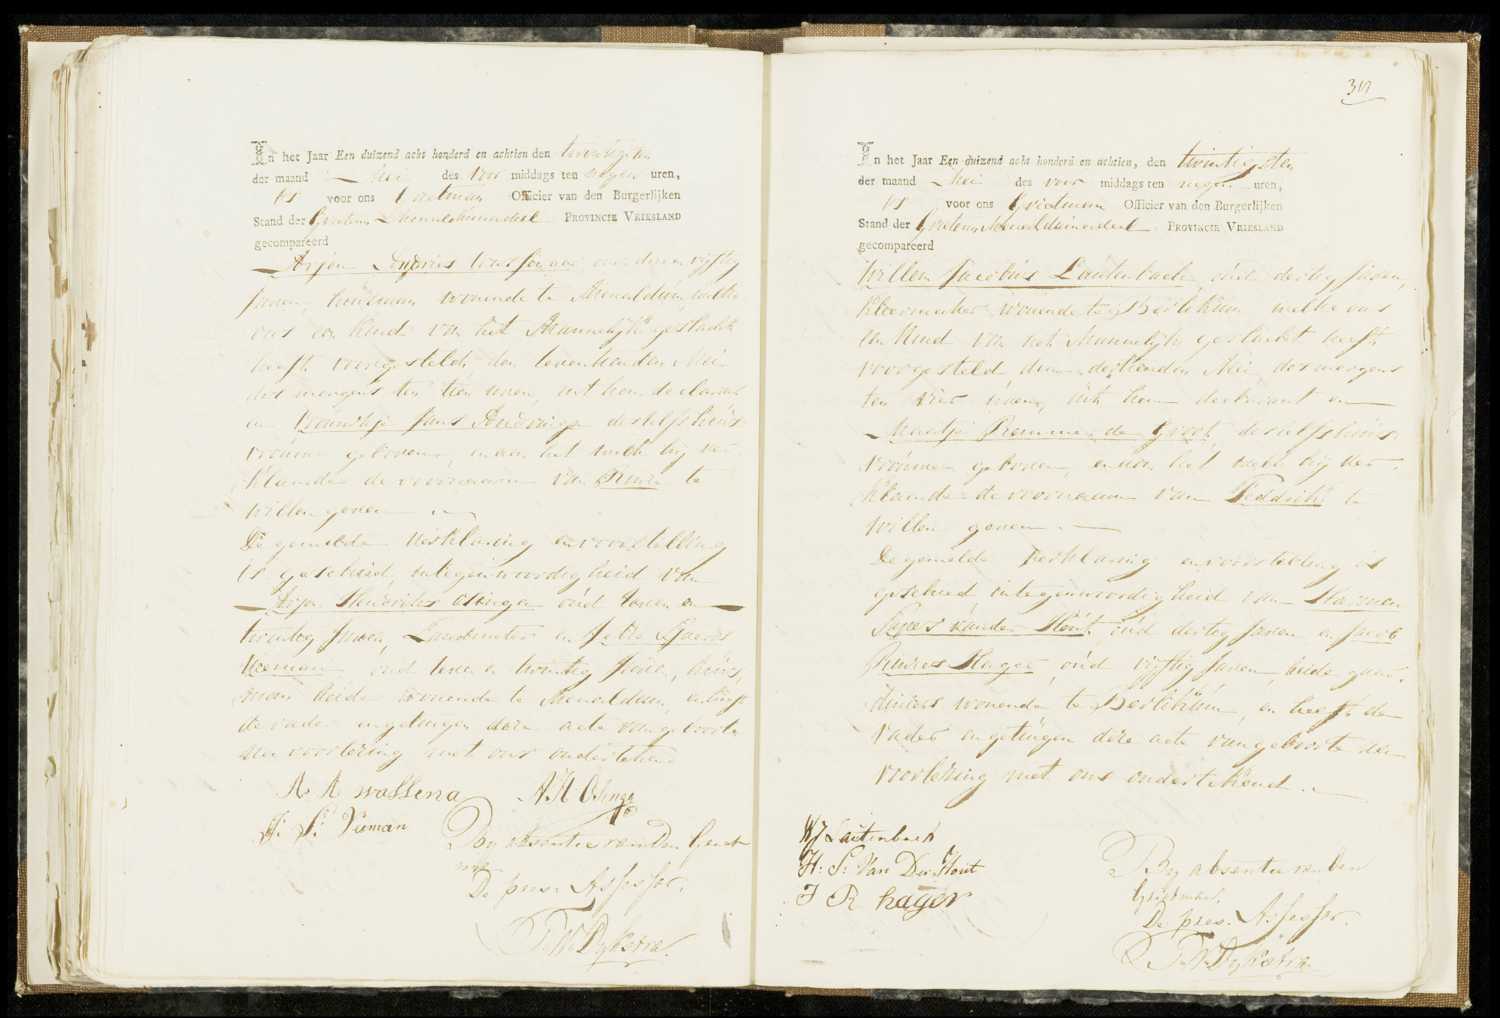 In het Jaar Een duizend acht honderd en achtien den twintigsten
der maand Mei des voor middags ten negen uren,
is voor ons Grietman Officier van den Burgerlijken
Stand der Grieteny Menaldumadeel PROVINCIE VRIESLAND
gecompareerd
Arjen Andries Wassenaar oud drie en vijftig
Jaren, huisman wonende te Menaldum, welke
ons een kind van het Mannelijk geslacht
heeft voorgesteld, den Mei
des morgens ten tien uren, uit hem declarant
en Jans deszelfs huis
vrouw geboren, en aan het welk hij ver
klaarde de voornaam van te
willen geven
De gemelde verklaring en voorstelling
is geschied, in tegenwoordigheid van
Arjen Hendriks Osinga oud en
twintig Jaren, en Jelle Sjoerds
Veeman oud en twintig Jaren, huis
man beide wonende te Menaldum, en heeft
de vader en getuigen deze acte van geboorte
na voorlezing met ons ondertekend
A A wassena A H Osinga
J: S: Veman
Door absentie van Den Grietman
De pres. Assessor.
T W Dykstra.
312
In het Jaar Een duizend acht honderd en achtien, den twintigsten
der maand Mei des voor middags ten negen uren,
is voor ons Grietman Officier van den Burgerlijken
Stand der Grieteny Menaldumadeel PROVINCIE VRIESLAND
gecompareerd
Willem Jacobus Lautenbach, oud dertig Jaren,
kleermaker wonende te Berlikum welke ons
een kind van het Mannelijk geslacht heeft
voorgesteld, den dertienden Mei des morgens
ten vier uren, uit hem declarant en
Maatje Piemmes de Groot, deszelfs huis
vrouw geboren, en aan het welk hij ver
klaarde de voornaam van Feddrik te
willen geven
De gemelde verklaring en voorstelling is
geschied in tegenwoordigheid van Harmen
van der Hout, oud dertig Jaren en Jacob
Rinzes Hager, oud vijftig Jaren, beide gar
deniers wonende te Berlikum, en heeft de
vader en getuigen deze acte van geboorte na
voorlezing met ons ondertekend
W J Lautenbach
H: S: Van Der Hout
J R hager
By absentie van Den
Grietman.
De pres. Assessor.
T W Dykstra.